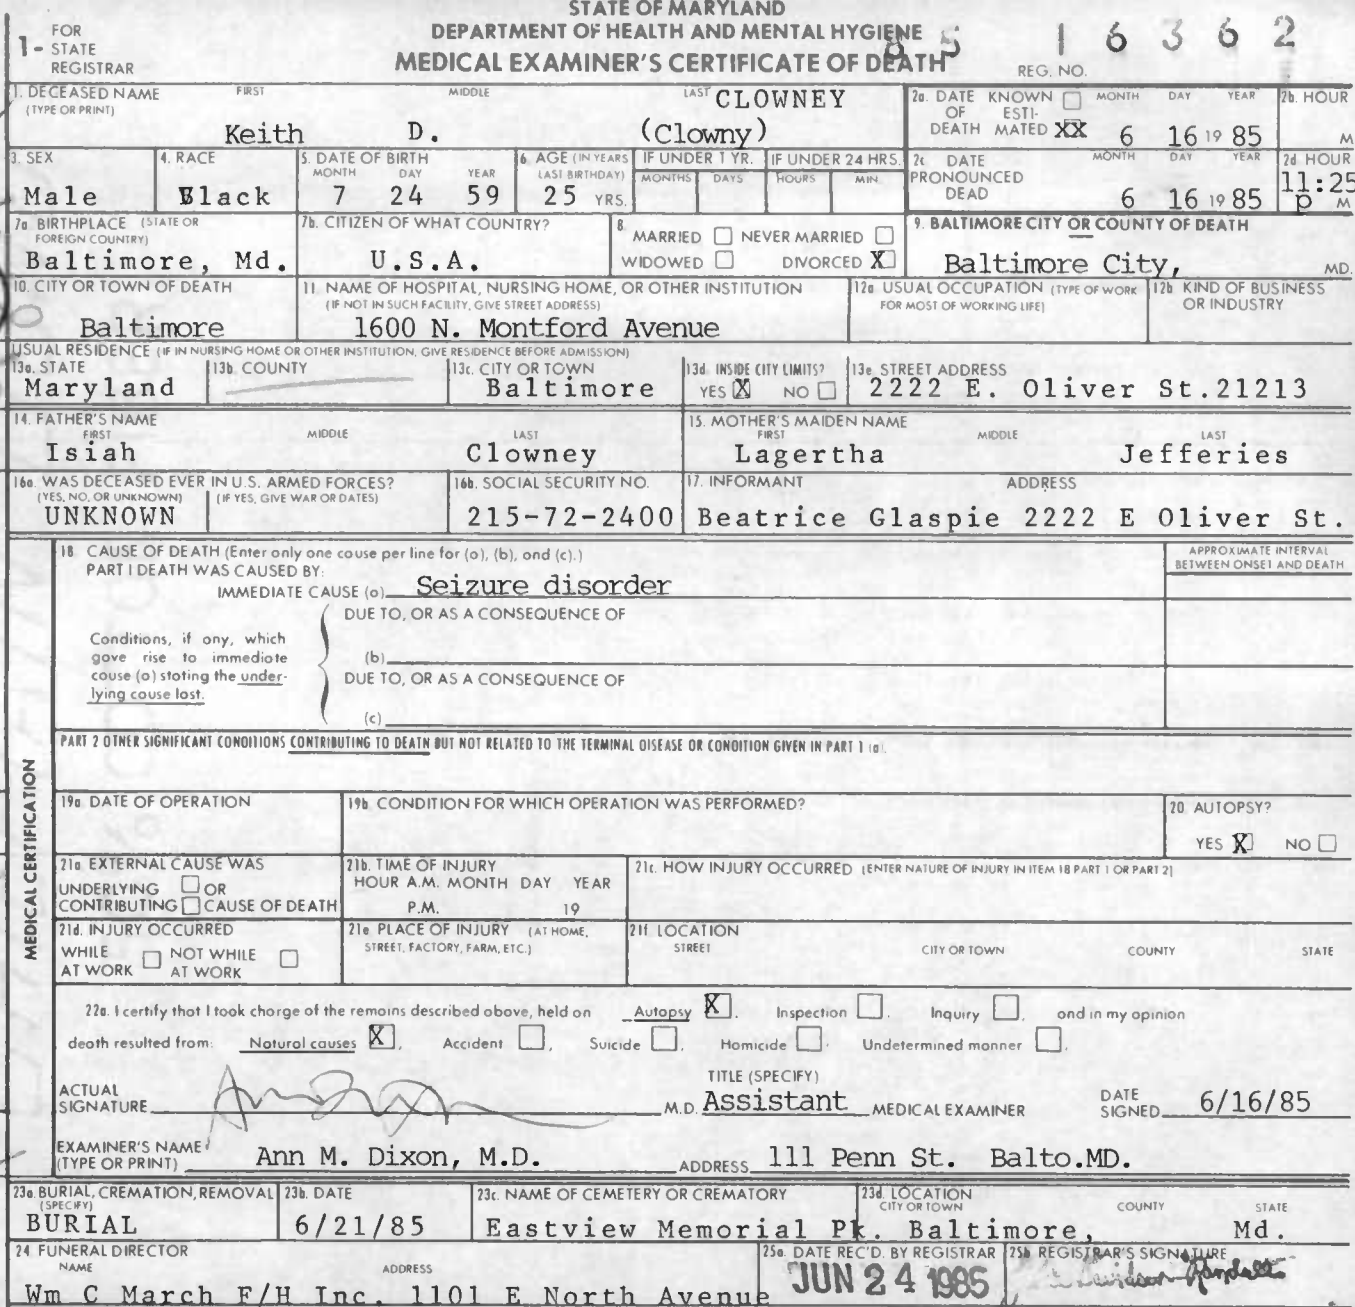 STATE OF MARYLAND
DEPARTMENT OF HEALTH AND MENTAL HYGIENE
MEDICAL EXAMINER'S CERTIFICATE OF DEATH
1- FOR STATE REGISTRAR
85 16362
REG. NO.
1. DECEASED NAME (TYPE OR PRINT) FIRST MIDDLE LAST
CLOWNEY
Keith D. (Clowny)
2a. DATE OF DEATH KNOWN ☐ ESTI-MATED XX MONTH DAY YEAR
6 16 19 85
2b. HOUR M
3. SEX
Male
4. RACE
Black
5. DATE OF BIRTH MONTH DAY YEAR
7 24 59
6. AGE (IN YEARS LAST BIRTHDAY)
25 YRS.
IF UNDER 1 YR. MONTHS DAYS
IF UNDER 24 HRS. HOURS MIN.
2c DATE PRONOUNCED DEAD MONTH DAY YEAR
6 16 19 85
2d HOUR
11:25 p M
7a BIRTHPLACE (STATE OR FOREIGN COUNTRY)
Baltimore, Md.
7b. CITIZEN OF WHAT COUNTRY?
U.S.A.
8. MARRIED ☐ NEVER MARRIED ☐
WIDOWED ☐ DIVORCED X
9. BALTIMORE CITY OR COUNTY OF DEATH
Baltimore City, MD.
10. CITY OR TOWN OF DEATH
Baltimore
11. NAME OF HOSPITAL, NURSING HOME, OR OTHER INSTITUTION
(IF NOT IN SUCH FACILITY, GIVE STREET ADDRESS)
1600 N. Montford Avenue
12a USUAL OCCUPATION (TYPE OF WORK FOR MOST OF WORKING LIFE)
12b KIND OF BUSINESS OR INDUSTRY
USUAL RESIDENCE (IF IN NURSING HOME OR OTHER INSTITUTION, GIVE RESIDENCE BEFORE ADMISSION)
13a. STATE
Maryland
13b. COUNTY
13c. CITY OR TOWN
Baltimore
13d INSIDE CITY LIMITS?
YES X NO ☐
13e STREET ADDRESS
2222 E. Oliver St.21213
14. FATHER'S NAME FIRST MIDDLE LAST
Isiah Clowney
15. MOTHER'S MAIDEN NAME FIRST MIDDLE LAST
Lagertha Jefferies
16a. WAS DECEASED EVER IN U.S. ARMED FORCES?
(YES, NO, OR UNKNOWN) (IF YES, GIVE WAR OR DATES)
UNKNOWN
16b. SOCIAL SECURITY NO.
215-72-2400
17. INFORMANT ADDRESS
Beatrice Glaspie 2222 E Oliver St.
MEDICAL CERTIFICATION
18 CAUSE OF DEATH (Enter only one cause per line for (a), (b), and (c).)
PART I DEATH WAS CAUSED BY:
IMMEDIATE CAUSE (a) Seizure disorder
APPROXIMATE INTERVAL BETWEEN ONSET AND DEATH
DUE TO, OR AS A CONSEQUENCE OF
Conditions, if any, which gave rise to immediate cause (a) stating the under-lying cause last.
(b)
DUE TO, OR AS A CONSEQUENCE OF
(c)
PART 2 OTHER SIGNIFICANT CONDITIONS CONTRIBUTING TO DEATH BUT NOT RELATED TO THE TERMINAL DISEASE OR CONDITION GIVEN IN PART 1 (a).
19a DATE OF OPERATION
19b. CONDITION FOR WHICH OPERATION WAS PERFORMED?
20 AUTOPSY?
YES X NO ☐
21a EXTERNAL CAUSE WAS
UNDERLYING ☐ OR
CONTRIBUTING ☐ CAUSE OF DEATH
21b. TIME OF INJURY
HOUR A.M. MONTH DAY YEAR
P.M. 19
21c. HOW INJURY OCCURRED (ENTER NATURE OF INJURY IN ITEM 18 PART 1 OR PART 2)
21d. INJURY OCCURRED
WHILE AT WORK ☐ NOT WHILE AT WORK ☐
21e PLACE OF INJURY (AT HOME, STREET, FACTORY, FARM, ETC.)
21f LOCATION
STREET CITY OR TOWN COUNTY STATE
22a. I certify that I took charge of the remains described above, held on Autopsy X, Inspection ☐, Inquiry ☐, and in my opinion
death resulted from: Natural causes X, Accident ☐, Suicide ☐, Homicide ☐, Undetermined manner ☐.
ACTUAL SIGNATURE M.D.
TITLE (SPECIFY)
Assistant MEDICAL EXAMINER
DATE SIGNED 6/16/85
EXAMINER'S NAME (TYPE OR PRINT) Ann M. Dixon, M.D.
ADDRESS 111 Penn St. Balto.MD.
23a. BURIAL, CREMATION, REMOVAL (SPECIFY)
BURIAL
23b. DATE
6/21/85
23c. NAME OF CEMETERY OR CREMATORY
Eastview Memorial Pk.
23d. LOCATION CITY OR TOWN COUNTY STATE
Baltimore, Md.
24 FUNERAL DIRECTOR
NAME ADDRESS
Wm C March F/H Inc. 1101 E North Avenue
25a. DATE REC'D. BY REGISTRAR
JUN 24 1985
25b REGISTRAR'S SIGNATURE